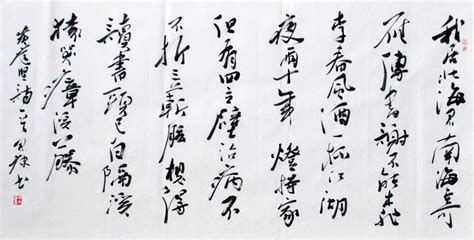 我居北海君南海寄
雁傳書謝不能桃
李春風酒一杯江湖
夜雨十年燈持家
但有四立壁治病不
折三蘄肱想得
讀書頭已白隔溪
猿哭瘴溪藤
黃庭堅詩 書